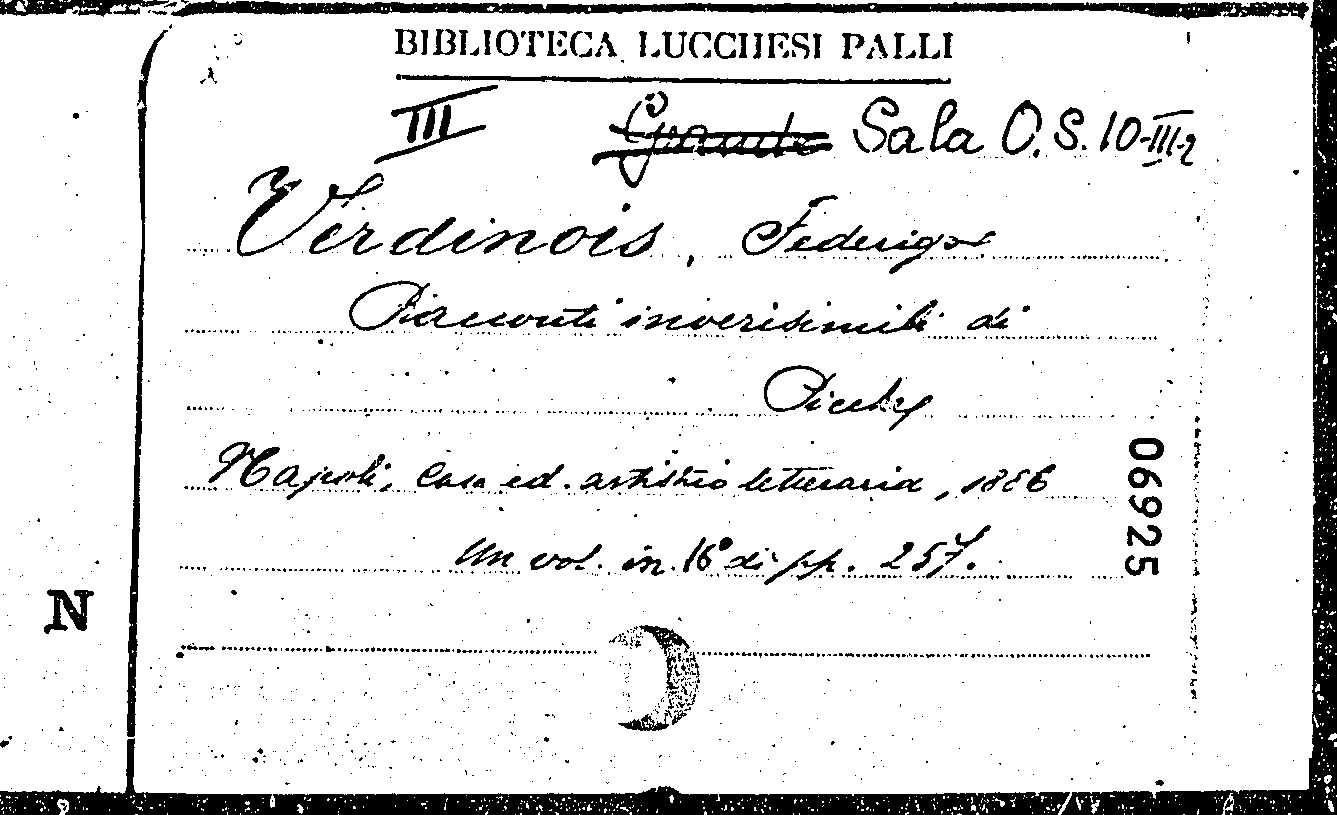 BIBLIOTECA LUCCHESI PALLI
III Grande Sala O.S. 10-III-2
Verdinois, Federigo
Racconti inverisimili di
Picche
Napoli, Casa ed. artistico letteraria, 1886
Un vol. in 16° di pp. 257.
06925
N